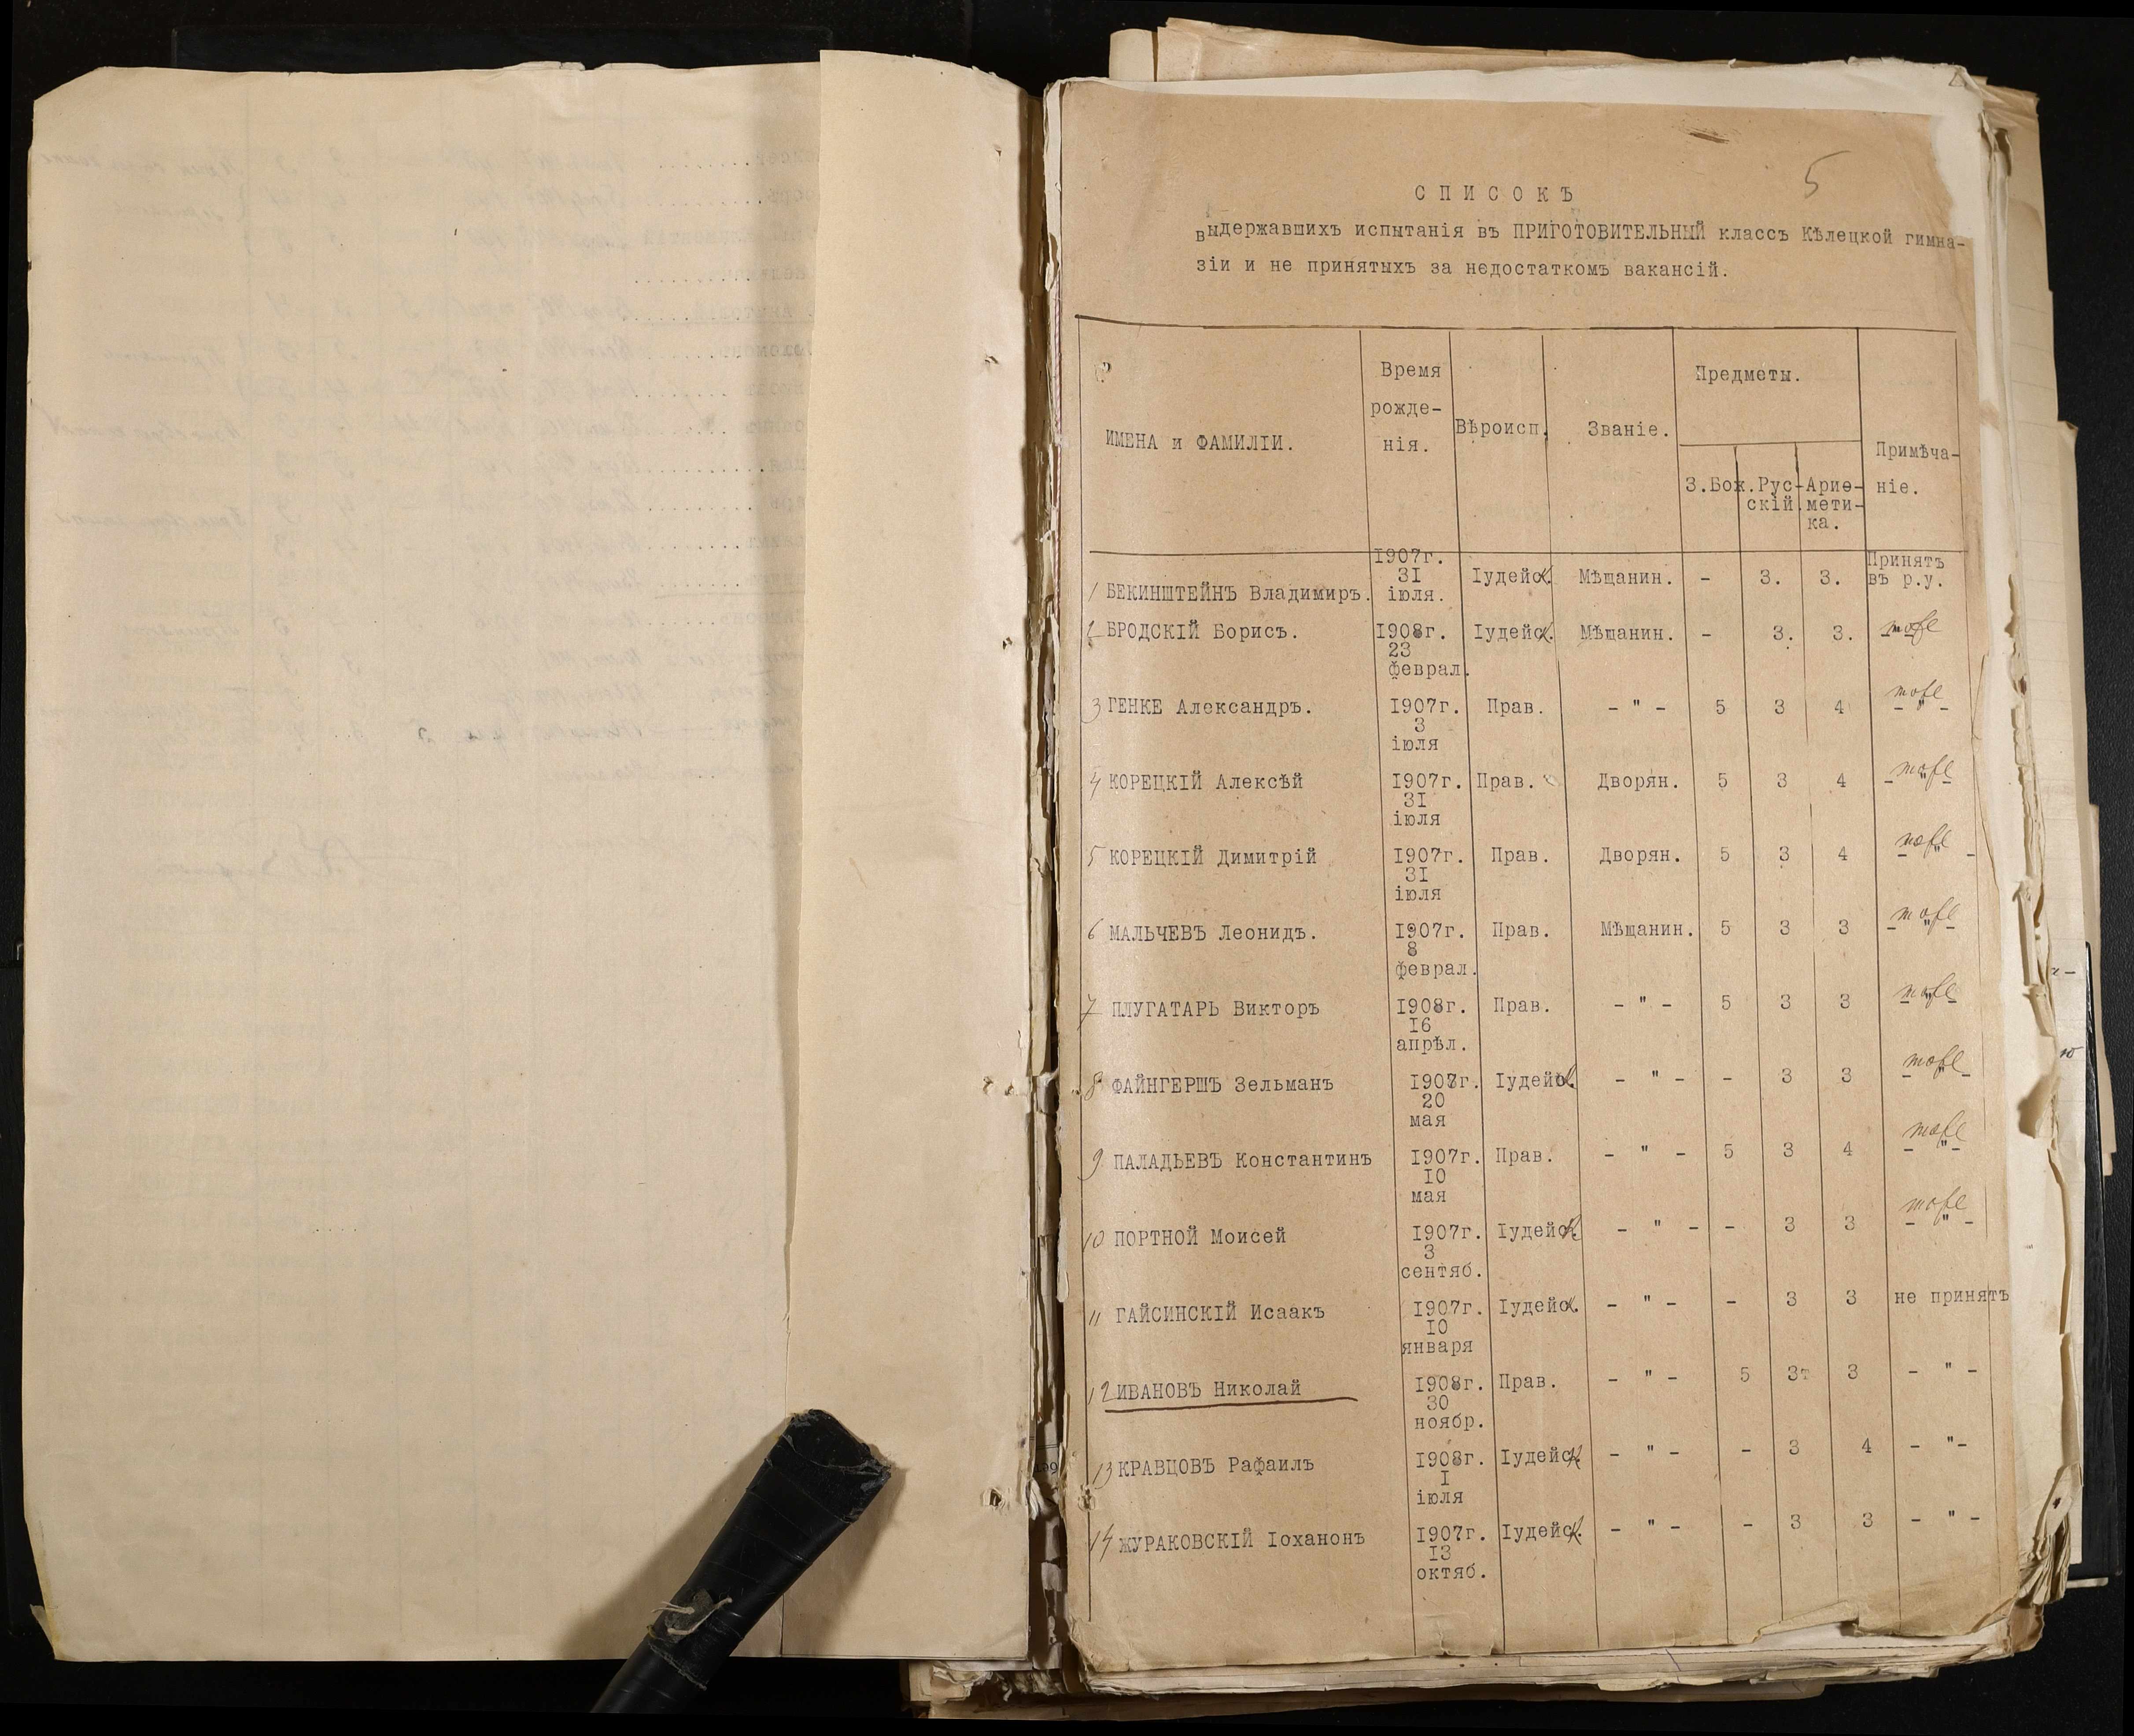 5
СПИСОКЪ
выдержавшихъ испытанія въ ПРИГОТОВИТЕЛЬНЫЙ классъ Кѣлецкой гимна-
зіи и не принятыхъ за недостаткомъ вакансій.
ИМЕНА и ФАМИЛІИ. Время рожде- нія. Вѣроисп. Званіе. Предметы. Примѣча- ніе.
З.Бож. Рус- скій. Ариѳ- мети- ка.
1 БЕКИНШТЕЙНЪ Владимиръ. 1907г. 31 іюля. Іудейск. Мѣщанин. - 3. 3. Принятъ въ р.у.
2 БРОДСКІЙ Борисъ. 1908г. 23 феврал. Іудейск. Мѣщанин. - 3. 3. тоже
3 ГЕНКЕ Александръ. 1907г. 3 іюля Прав. - " - 5 3 4 тоже - " -
4 КОРЕЦКІЙ Алексѣй 1907г. 31 іюля Прав. Дворян. 5 3 4 тоже - " -
5 КОРЕЦКІЙ Димитрій 1907г. 31 іюля Прав. Дворян. 5 3 4 тоже - " -
6 МАЛЬЧЕВЪ Леонидъ. 1907г. 8 феврал. Прав. Мѣщанин. 5 3 3 тоже - " -
7 ПЛУГАТАРЬ Викторъ 1908г. 16 апрѣл. Прав. - " - 5 3 3 тоже - " -
8 ФАЙНГЕРШЪ Зельманъ 1907г. 20 мая Іудейск. - " - - 3 3 тоже - " -
9 ПАЛАДЬЕВЪ Константинъ 1907г. 10 мая Прав. - " - 5 3 4 тоже - " -
10 ПОРТНОЙ Моисей 1907г. 3 сентяб. Іудейск. - " - - 3 3 тоже - " -
11 ГАЙСИНСКІЙ Исаакъ 1907г. 10 января Іудейск. - " - - 3 3 не принятъ
12 ИВАНОВЪ Николай 1908г. 30 ноябр. Прав. - " - 5 3т 3 - " -
13 КРАВЦОВЪ Рафаилъ 1908г. 1 іюля Іудейск - " - - 3 4 - "-
14 ЖУРАКОВСКІЙ Іоханонъ 1907г. 13 октяб. Іудейск. - " - - 3 3 - " -